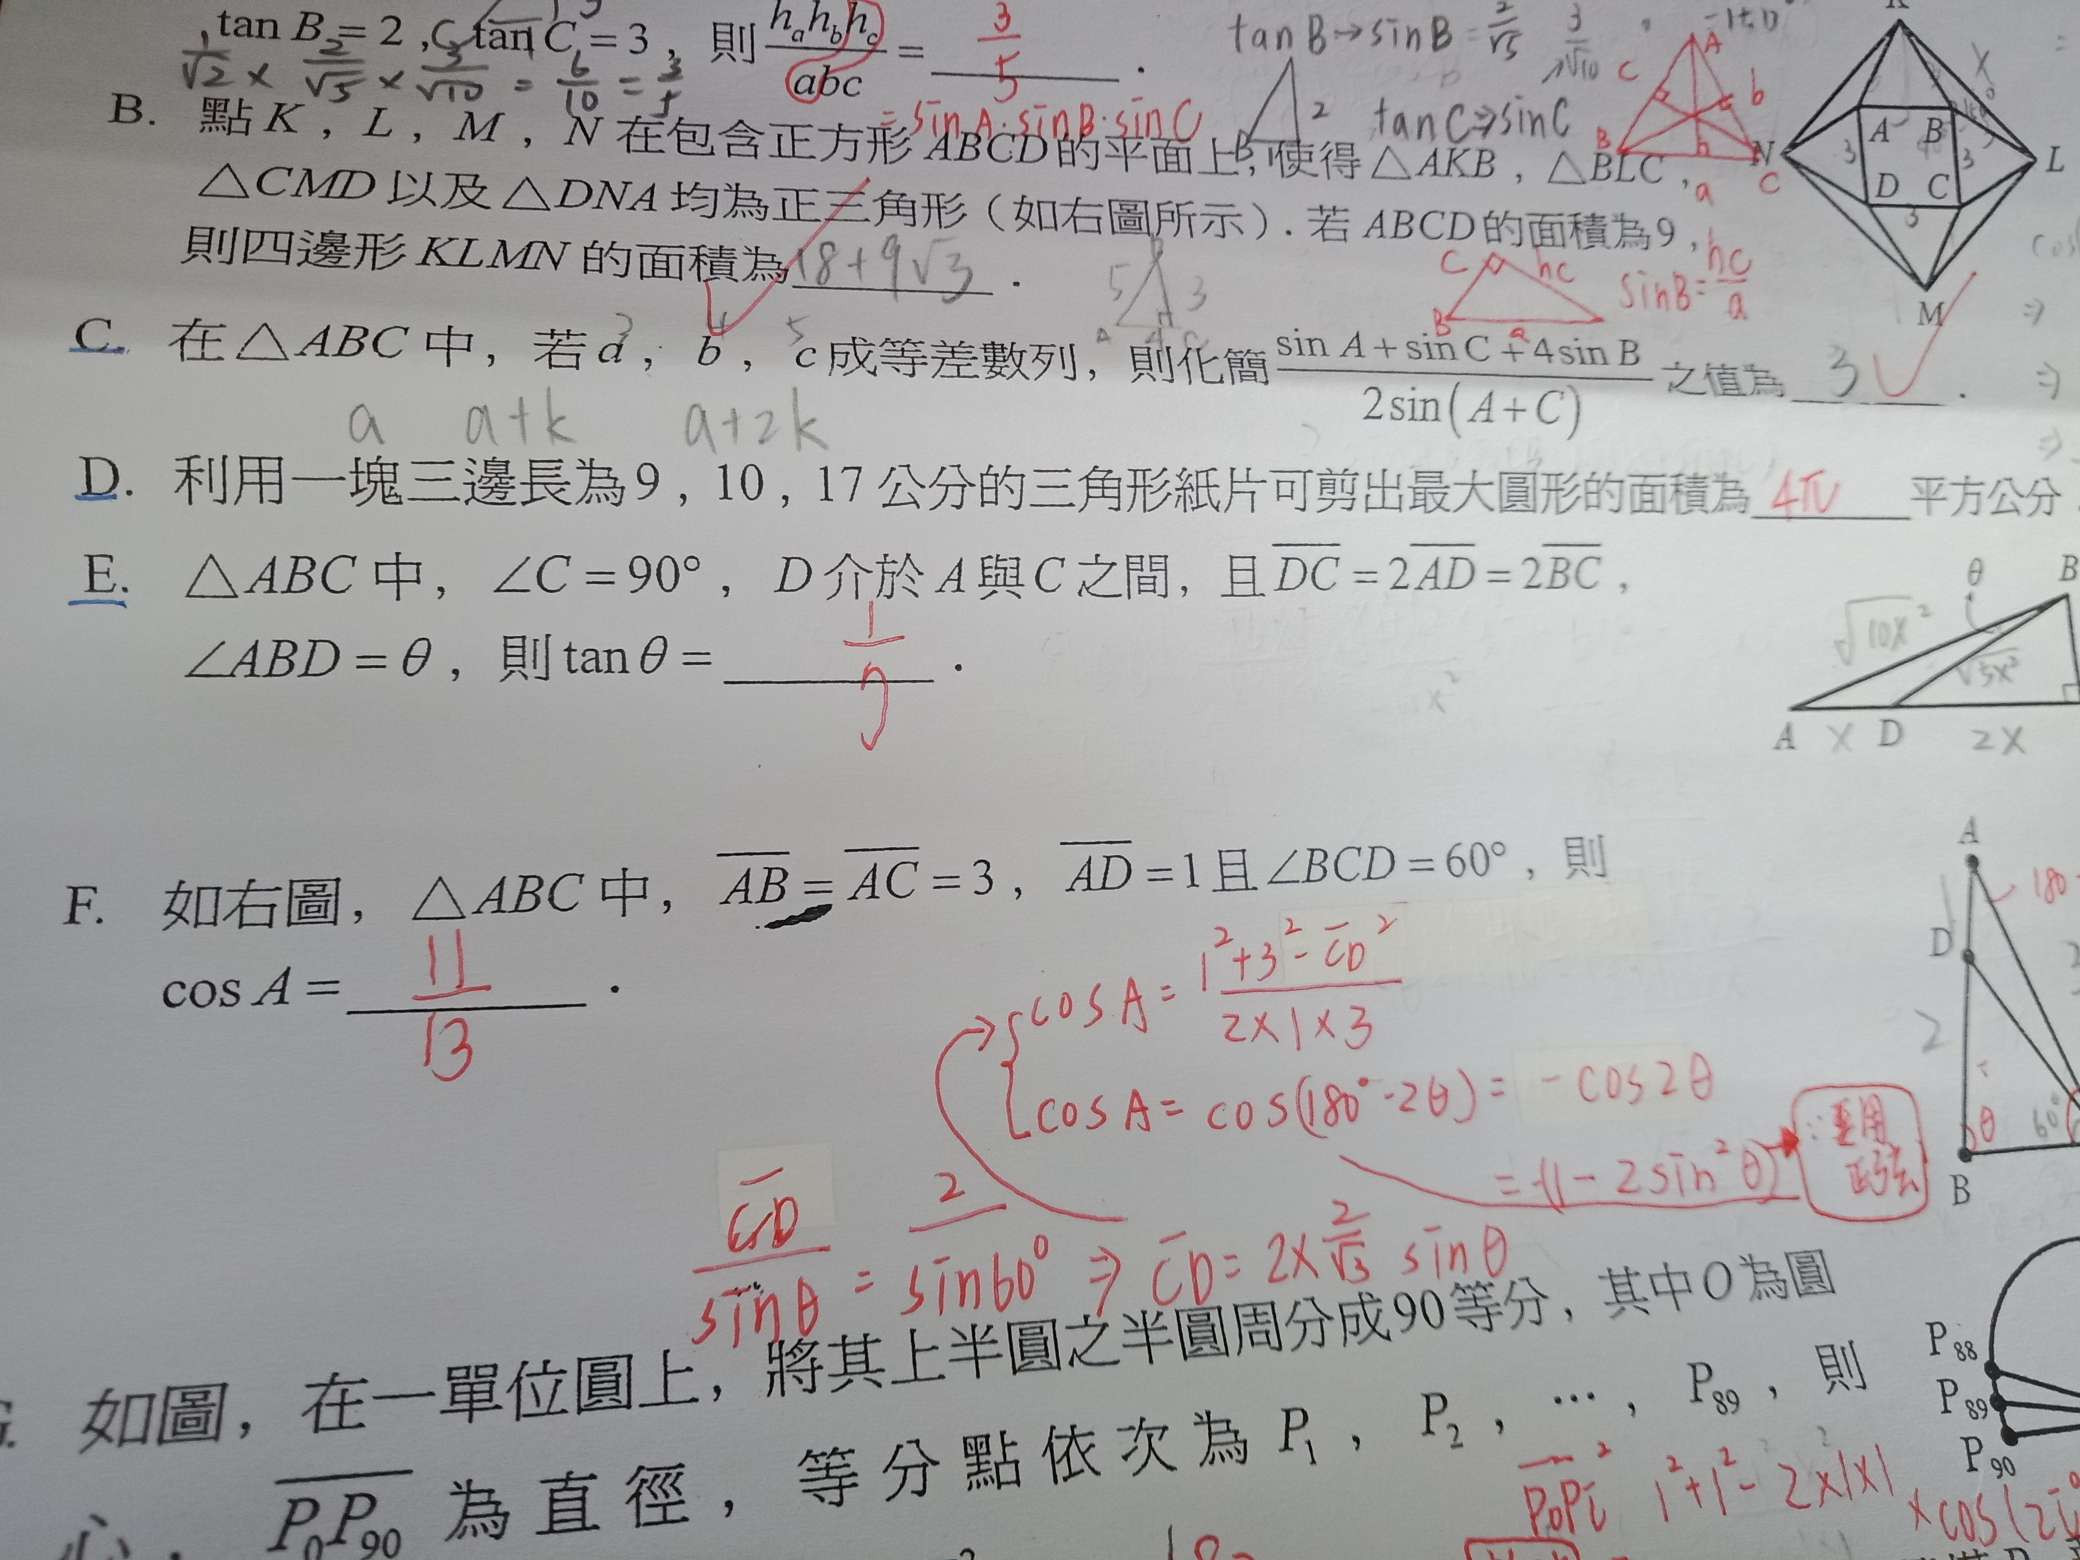 tan B = 2 , tan C = 3 , 則 hₐh_bh_c / abc = 3/5 .
1/√2 × 2/√5 × 3/√10 = 6/10 = 3/5
= sin A · sin B · sin C
tan B → sin B = 2/√5 3/√10
tan C → sin C
B. 點 K , L , M , N 在包含正方形 ABCD 的平面上, 使得 △AKB , △BLC ,
△CMD 以及 △DNA 均為正三角形 ( 如右圖所示 ) . 若 ABCD 的面積為 9 ,
則四邊形 KLMN 的面積為 18+9√3 .
A B C D L M N
3 3 3
A B C a b c h
sin B = hc/a
C hc B a
5 3
C. 在 △ABC 中, 若 a , b , c 成等差數列, 則化簡 (sin A + sin C + 4 sin B) / (2 sin(A + C)) 之值為 3 .
a a+k a+2k
D. 利用一塊三邊長為 9 , 10 , 17 公分的三角形紙片可剪出最大圓形的面積為 4π 平方公分
E. △ABC 中, ∠C = 90° , D 介於 A 與 C 之間, 且 DC = 2AD = 2BC ,
∠ABD = θ , 則 tan θ = 1/7 .
θ B
√10x² √5x²
A x D 2x
F. 如右圖, △ABC 中, AB = AC = 3 , AD = 1 且 ∠BCD = 60° , 則
cos A = 11/13 .
cos A = (1² + 3² - CD²) / (2×1×3)
cos A = cos(180° - 2θ) = - cos 2θ
= -(1 - 2 sin² θ)
∵ 要用
正弦
CD / sin θ = 2 / sin 60° ⇒ CD = 2 × 2/√3 sin θ
A 180
D
2
θ 60°
B
如圖, 在一單位圓上, 將其上半圓之半圓周分成 90 等分, 其中 O 為圓
心, P₀P₉₀ 為直徑, 等分點依次為 P₁ , P₂ , … , P₈₉ , 則
P₈₈
P₈₉
P₉₀
P₀Pi² 1² + 1² - 2×1×1
× cos(2i°